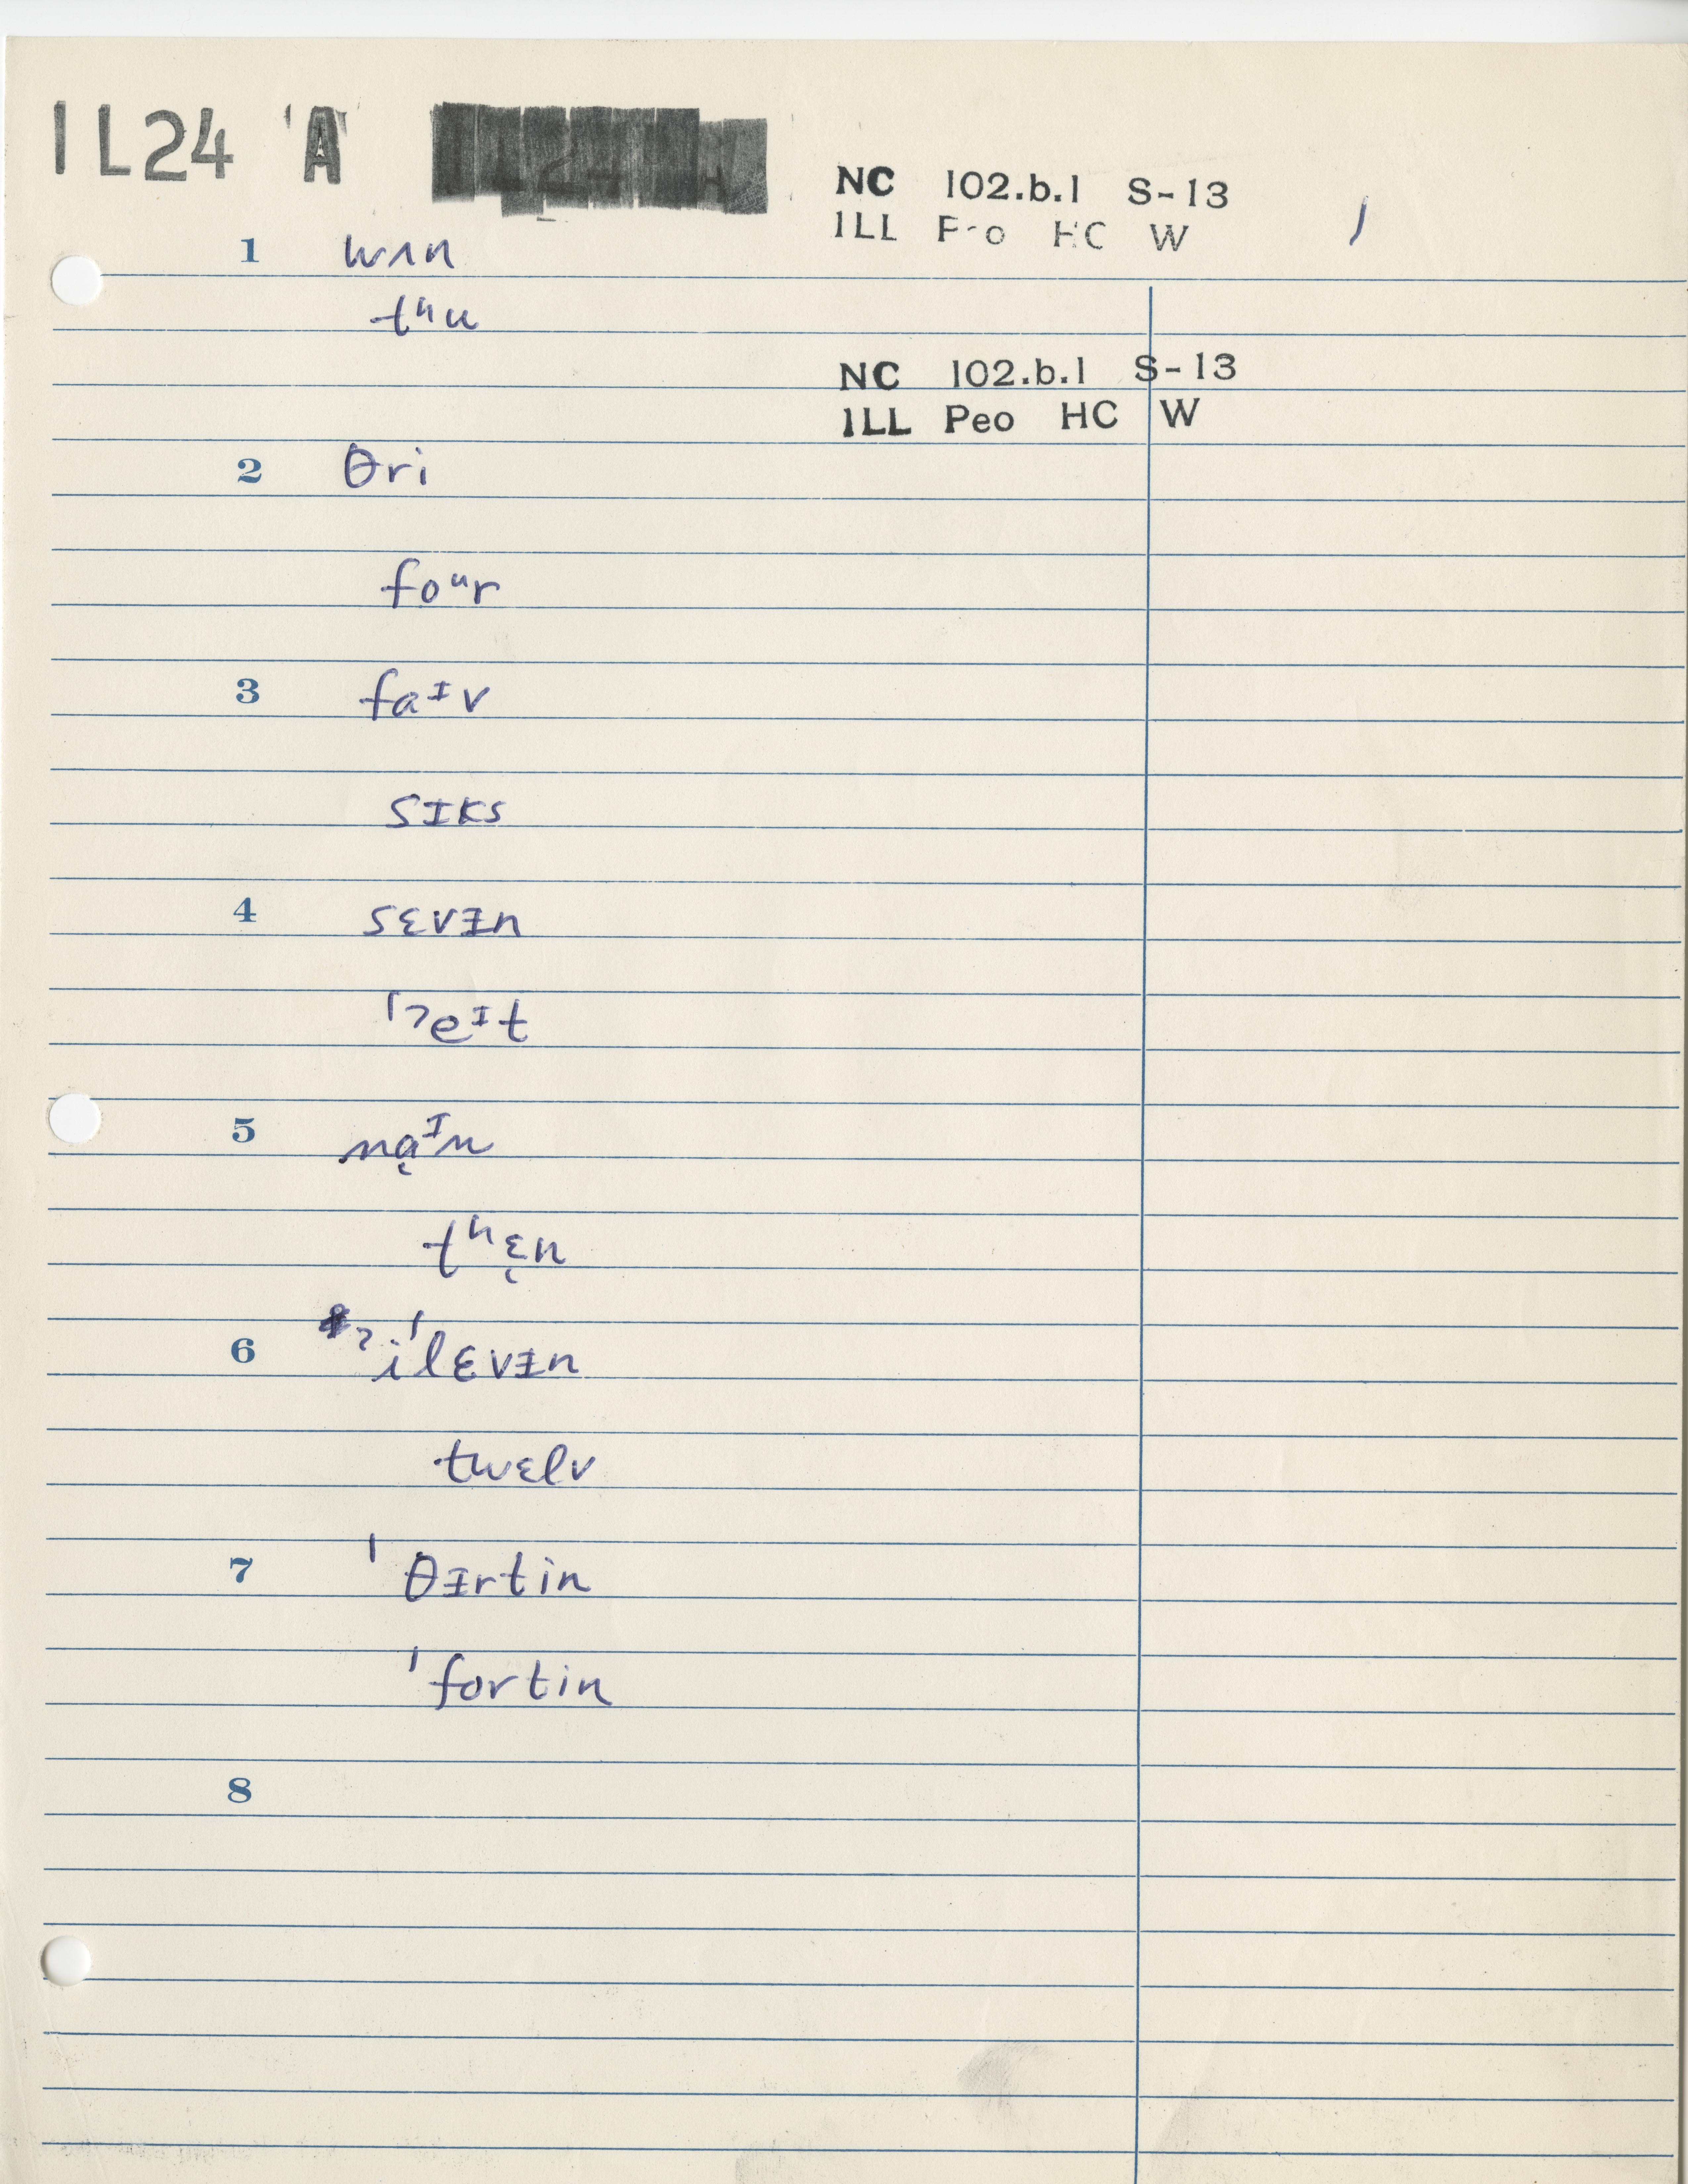 IL24 'A'
NC 102.b.1 S-13 1
ILL Peo HC W
1 wʌn
tʰu
NC 102.b.1 S-13
ILL Peo HC W
2 θri
foᵘr
3 faᶦv
sɪks
4 sɛvᵻn
ˈˀeᶦt
5 na̜ᶦn
tʰɛ̜n
6 ˀiˈlɛvᵻn
twɛlv
7 ˈθᵻrtin
ˈfortin
8